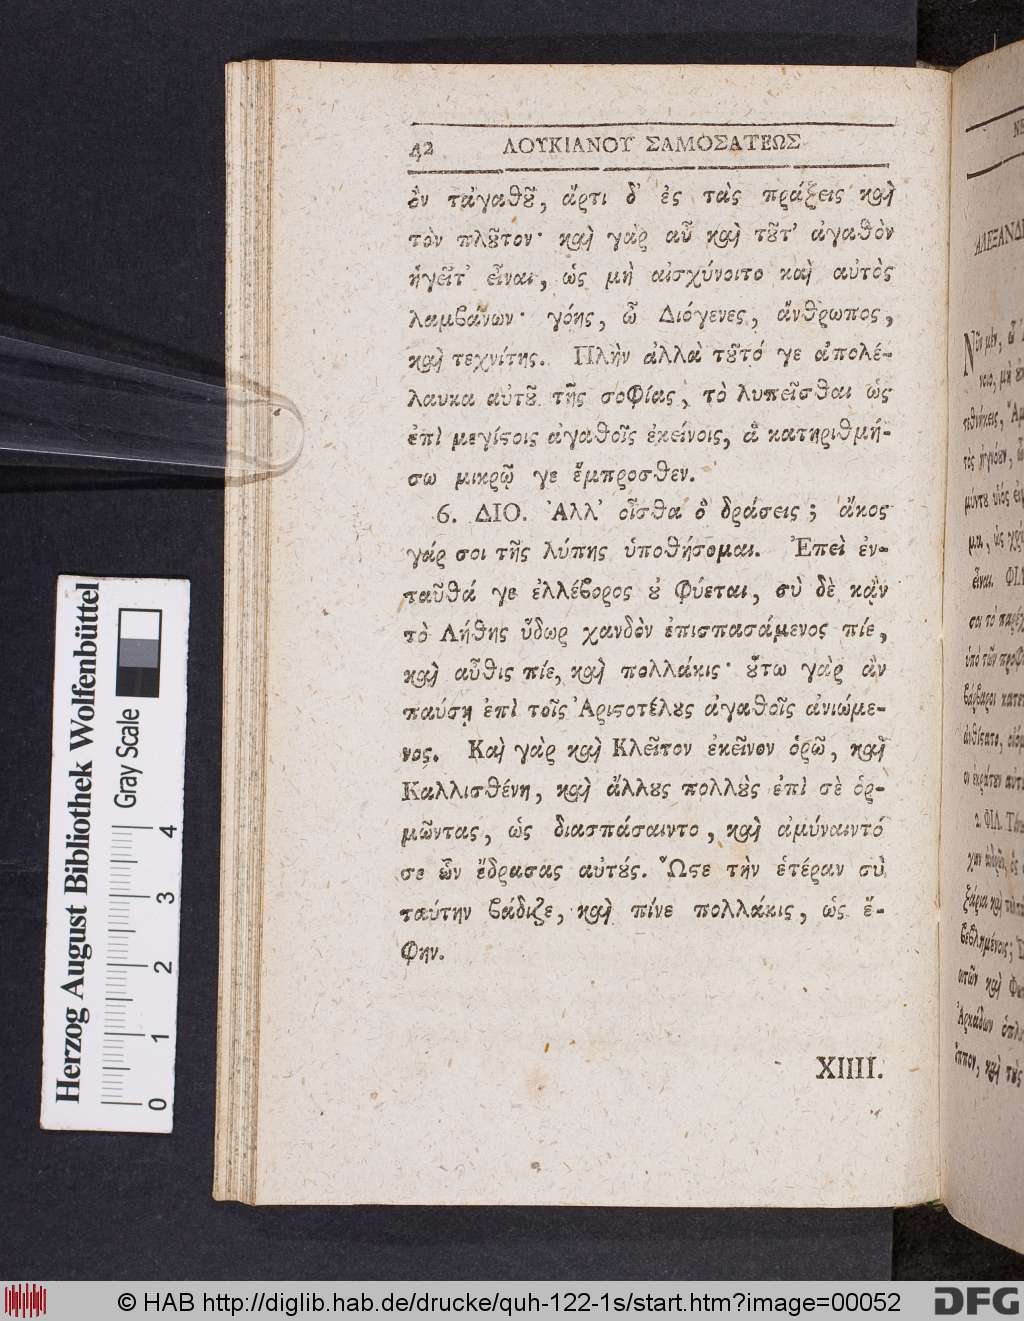 42 ΛΟΥΚΙΑΝΟΥ ΣΑΜΟΣΑΤΕΩΣ
ὂν τἀγαθοῦ, ἄρτι δ' ἐς τὰς πράξεις καὶ
τὸν πλοῦτον· καὶ γὰρ αὖ καὶ τοῦτ' ἀγαθὸν
ἡγεῖτ' εἶναι, ὡς μὴ αἰσχύνοιτο καὶ αὐτὸς
λαμβάνων· γόης, ὦ Διόγενες, ἄνθρωπος,
καὶ τεχνίτης. Πλὴν ἀλλὰ τοῦτό γε ἀπολέ-
λαυκα αὐτοῦ τῆς σοφίας, τὸ λυπεῖσθαι ὡς
ἐπὶ μεγίστοις ἀγαθοῖς ἐκείνοις, ἃ κατηριθμή-
σω μικρῷ γε ἔμπροσθεν.
6. ΔΙΟ. Ἀλλ' οἶσθα ὃ δράσεις; ἄκος
γάρ σοι τῆς λύπης ὑποθήσομαι. Ἐπεὶ ἐν-
ταῦθά γε ἐλλέβορος οὐ φύεται, σὺ δὲ κᾂν
τὸ Λήθης ὕδωρ χανδὸν ἐπισπασάμενος πίε,
καὶ αὖθις πίε, καὶ πολλάκις· οὕτω γὰρ ἂν
παύσῃ ἐπὶ τοῖς Ἀριστοτέλους ἀγαθοῖς ἀνιώμε-
νος. Καὶ γὰρ καὶ Κλεῖτον ἐκεῖνον ὁρῶ, καὶ
Καλλισθένη, καὶ ἄλλους πολλοὺς ἐπὶ σὲ ὁρ-
μῶντας, ὡς διασπάσαιντο, καὶ ἀμύναιντό
σε ὧν ἔδρασας αὐτούς. Ὥστε τὴν ἑτέραν σὺ
ταύτην βάδιζε, καὶ πίνε πολλάκις, ὡς ἔ-
φην.
XIIII.
Herzog August Bibliothek Wolfenbüttel
Gray Scale
0 1 2 3 4
© HAB http://diglib.hab.de/drucke/quh-122-1s/start.htm?image=00052
DFG